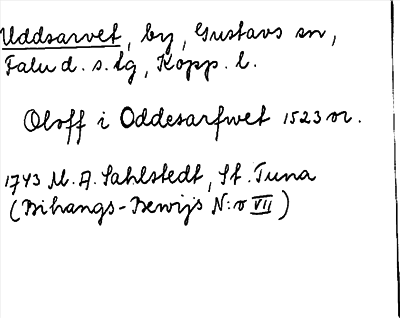 Uddsarvet, by, Gustavs sn,
Falu d. s. lg, Kopp. l.
Oloff i Oddesarfwet 1523 or.
1743 M. A. Sahlstedt, St. Tuna
(Bihangs-Bewijs N:o VII)